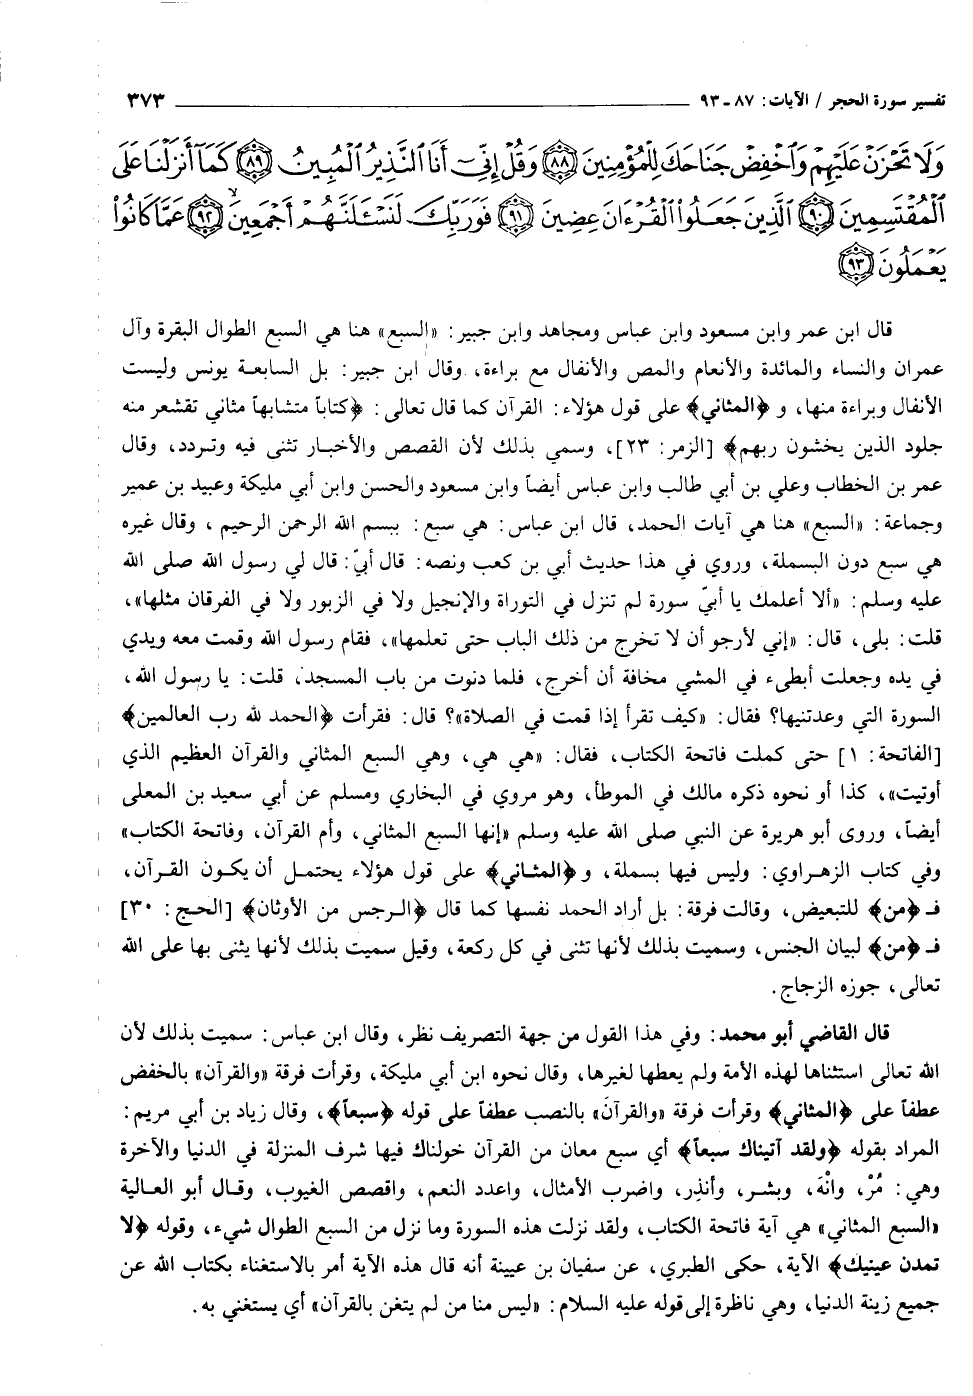 تفسير سورة الحجر / الآيات: ٨٧ - ٩٣ ٣٧٣
وَلَا تَحْزَنْ عَلَيْهِمْ وَاخْفِضْ جَنَاحَكَ لِلْمُؤْمِنِينَ ﴿٨٨﴾ وَقُلْ إِنِّي أَنَا النَّذِيرُ الْمُبِينُ ﴿٨٩﴾ كَمَا أَنْزَلْنَا عَلَى
الْمُقْتَسِمِينَ ﴿٩٠﴾ الَّذِينَ جَعَلُوا الْقُرْءَانَ عِضِينَ ﴿٩١﴾ فَوَرَبِّكَ لَنَسْـَٔلَنَّهُمْ أَجْمَعِينَ ﴿٩٢﴾ عَمَّا كَانُوا
يَعْمَلُونَ ﴿٩٣﴾
قال ابن عمر وابن مسعود وابن عباس ومجاهد وابن جبير: «السبع» هنا هي السبع الطوال البقرة وآل
عمران والنساء والمائدة والأنعام والمص والأنفال مع براءة، وقال ابن جبير: بل السابعة يونس وليست
الأنفال وبراءة منها، و ﴿المثاني﴾ على قول هؤلاء: القرآن كما قال تعالى: ﴿كتاباً متشابهاً مثاني تقشعر منه
جلود الذين يخشون ربهم﴾ [الزمر: ٢٣]، وسمي بذلك لأن القصص والأخبار تثنى فيه وتردد، وقال
عمر بن الخطاب وعلي بن أبي طالب وابن عباس أيضاً وابن مسعود والحسن وابن أبي مليكة وعبيد بن عمير
وجماعة: «السبع» هنا هي آيات الحمد، قال ابن عباس: هي سبع: ببسم الله الرحمن الرحيم، وقال غيره
هي سبع دون البسملة، وروي في هذا حديث أبي بن كعب ونصه: قال أبيّ: قال لي رسول الله صلى الله
عليه وسلم: «ألا أعلمك يا أبيّ سورة لم تنزل في التوراة والإنجيل ولا في الزبور ولا في الفرقان مثلها»،
قلت: بلى، قال: «إني لأرجو أن لا تخرج من ذلك الباب حتى تعلمها»، فقام رسول الله وقمت معه ويدي
في يده وجعلت أبطىء في المشي مخافة أن أخرج، فلما دنوت من باب المسجد، قلت: يا رسول الله،
السورة التي وعدتنيها؟ فقال: «كيف تقرأ إذا قمت في الصلاة»؟ قال: فقرأت ﴿الحمد لله رب العالمين﴾
[الفاتحة: ١] حتى كملت فاتحة الكتاب، فقال: «هي هي، وهي السبع المثاني والقرآن العظيم الذي
أوتيت»، كذا أو نحوه ذكره مالك في الموطأ، وهو مروي في البخاري ومسلم عن أبي سعيد بن المعلى
أيضاً، وروى أبو هريرة عن النبي صلى الله عليه وسلم «إنها السبع المثاني، وأم القرآن، وفاتحة الكتاب»
وفي كتاب الزهراوي: وليس فيها بسملة، و ﴿المثاني﴾ على قول هؤلاء يحتمل أن يكون القرآن،
فـ ﴿من﴾ للتبعيض، وقالت فرقة: بل أراد الحمد نفسها كما قال ﴿الرجس من الأوثان﴾ [الحج: ٣٠]
فـ ﴿من﴾ لبيان الجنس، وسميت بذلك لأنها تثنى في كل ركعة، وقيل سميت بذلك لأنها يثنى بها على الله
تعالى، جوزه الزجاج.
قال القاضي أبو محمد: وفي هذا القول من جهة التصريف نظر، وقال ابن عباس: سميت بذلك لأن
الله تعالى استثناها لهذه الأمة ولم يعطها لغيرها، وقال نحوه ابن أبي مليكة، وقرأت فرقة «والقرآن» بالخفض
عطفاً على ﴿المثاني﴾ وقرأت فرقة «والقرآنَ» بالنصب عطفاً على قوله ﴿سبعاً﴾، وقال زياد بن أبي مريم:
المراد بقوله ﴿ولقد آتيناك سبعاً﴾ أي سبع معان من القرآن خولناك فيها شرف المنزلة في الدنيا والآخرة
وهي: مُرْ، وانْهَ، وبشر، وأنذِر، واضرب الأمثال، واعدد النعم، واقصص الغيوب، وقال أبو العالية
«السبع المثاني» هي آية فاتحة الكتاب، ولقد نزلت هذه السورة وما نزل من السبع الطوال شيء، وقوله ﴿لا
تمدن عينيك﴾ الآية، حكى الطبري، عن سفيان بن عيينة أنه قال هذه الآية أمر بالاستغناء بكتاب الله عن
جميع زينة الدنيا، وهي ناظرة إلى قوله عليه السلام: «ليس منا من لم يتغن بالقرآن» أي يستغني به.